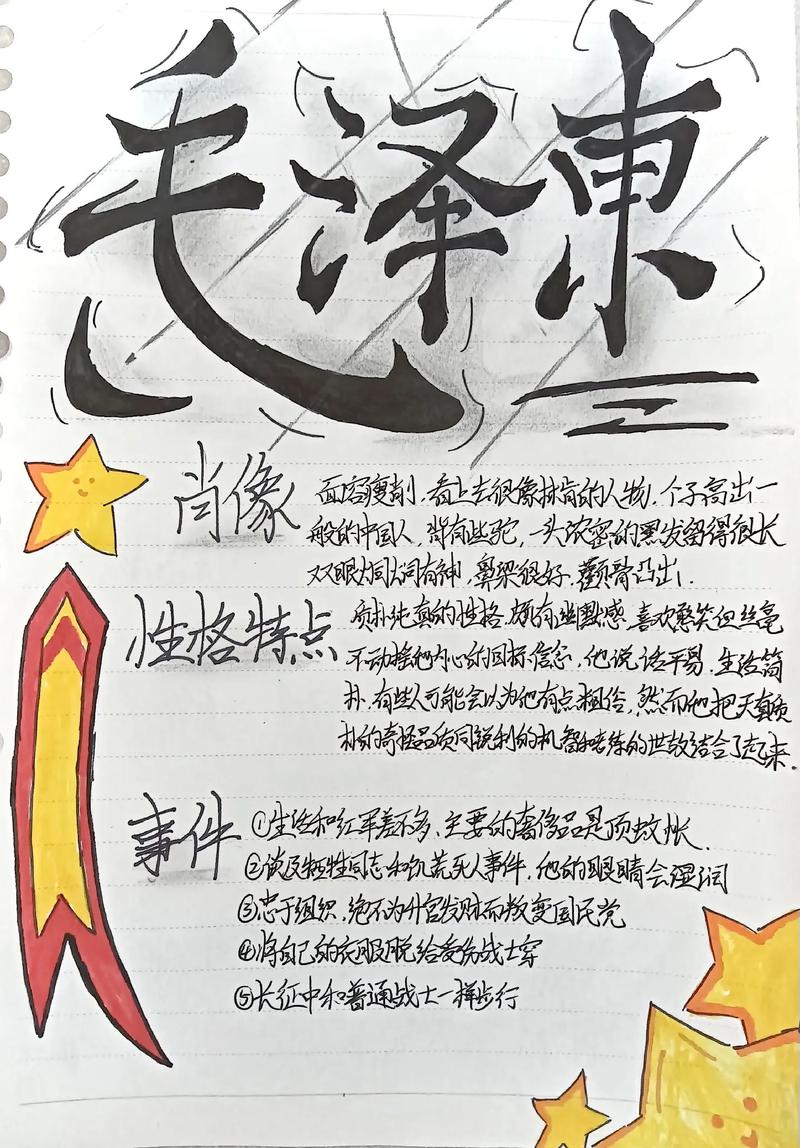 毛泽東
肖像
面容瘦削，看上去很像林肯的人物，个子高出一
般的中国人，背有些驼，一头浓密的黑发留得很长
双眼炯炯有神，鼻梁很好，颧骨凸出，
性格特点
质朴纯真的性格，颇有幽默感，喜欢憨笑但丝毫
不动摇他内心的目标信念，他说话平易，生活简
朴，有些人可能会以为他有点粗俗，然而他把天真质
朴的奇怪品质同锐利的机智和老练的世故结合了起来．
事件
①生活和红军差不多，主要的奢侈品是顶蚊帐．
②谈及牺牲同志和饥荒死人事件，他的眼睛会湿润
③忠于组织，绝不为升官发财而叛变国民党
④将自己的衣服脱给受伤战士穿
⑤长征中和普通战士一样步行